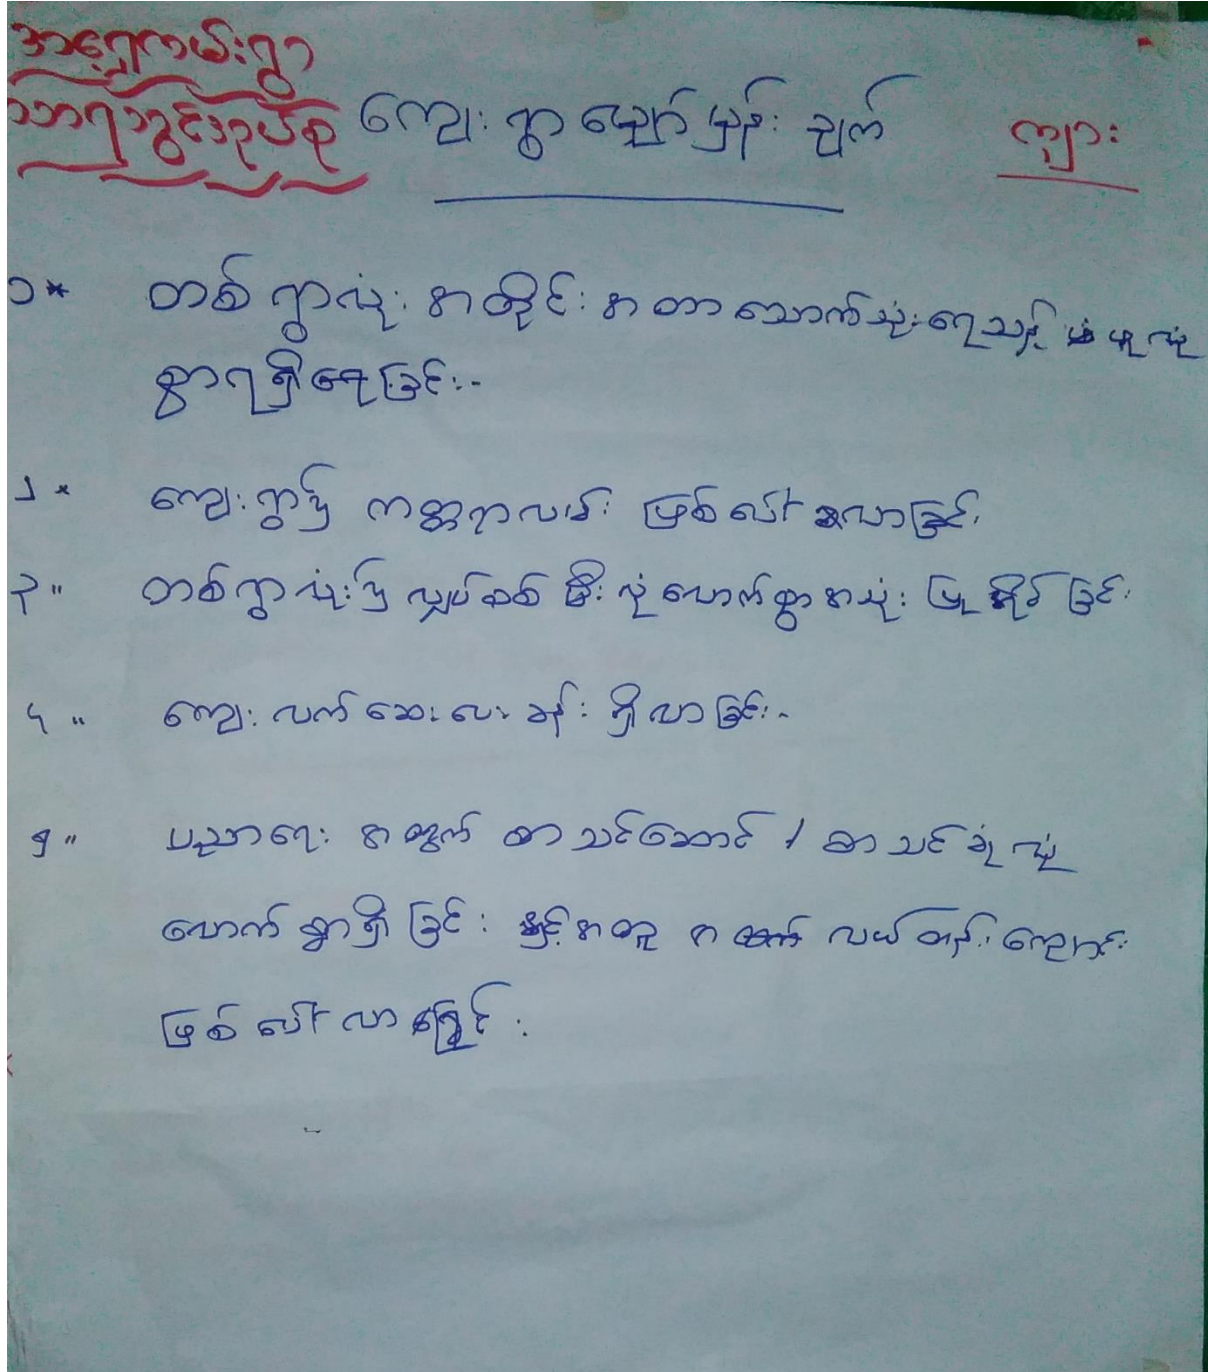 အရှေ့ကမ်းရွာ
သာရည်ွင်းအုပ်စု ကျေးရွာမျှော်မှန်းချက် ကျား
၁* တစ်ရွာလုံးအတိုင်းအတာသောက်သုံးရေသန့် ဖူလုံ
စွာရရှိနေခြင်း-
၂* ကျေးရွာ၌ ကတ္တရာလမ်း ဖြစ်ပေါ်လာခြင်း
၃" တစ်ရွာလုံး၌ လျှပ်စစ်မီးလုံလောက်စွာအသုံးပြုနိုင်ခြင်း
၄" ကျေးလက်ဆေးပေးခန်းရှိလာခြင်း-
၅" ပညာရေးအတွက် စာသင်ဆောင်/စာသင်ခုံလုံ
လောက်စွာရှိခြင်းနှင့်အတူ အလယ်တန်းကျောင်း
ဖြစ်ပေါ်လာခြင်း